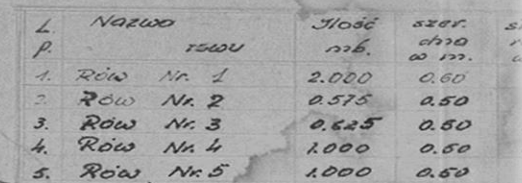 L. Nazwa Ilość szer.
p. rowu mb. dna
w m.
1. Rów Nr. 1 2.000 0.60
2. Rów Nr. 2 0.575 0.50
3. Rów Nr. 3 0.625 0.50
4. Rów Nr. 4 1.000 0.50
5. Rów Nr. 5 1.000 0.50